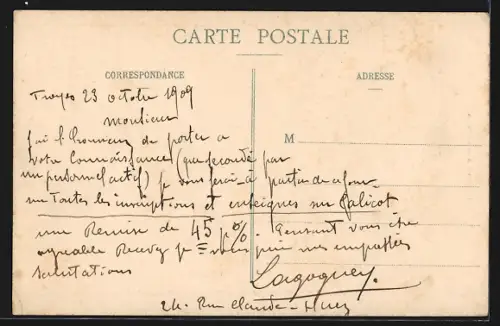 CARTE POSTALE
CORRESPONDANCE
ADRESSE
Troyes 23 octobre 1909
Monsieur
M
j'ai l'honneur de porter a
votre connaissance (que secondé par
un personnel actif) je vous ferai à partir de ce jour
sur Toutes les inscriptions et enseignes sur Calicot
une Remise de 45 p%. Pensant vous être
agréable Recevez je vous prie mes empressées
salutations
Lagoguey
24. Rue Claude-Huez